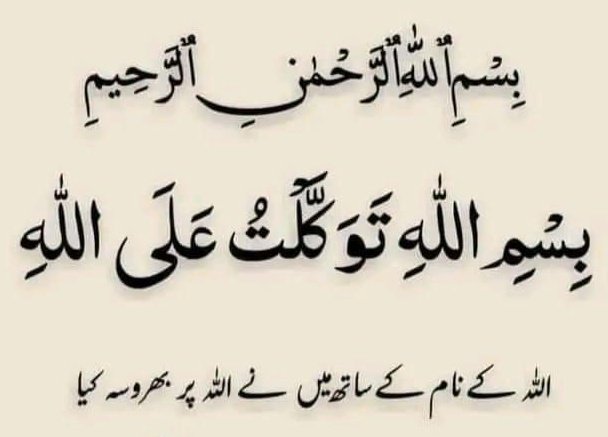 بِسْمِ ٱللّٰهِ ٱلرَّحْمٰنِ ٱلرَّحِيمِ
بِسْمِ اللّٰهِ تَوَكَّلْتُ عَلَى اللّٰهِ
اللہ کے نام کے ساتھ میں نے اللہ پر بھروسہ کیا